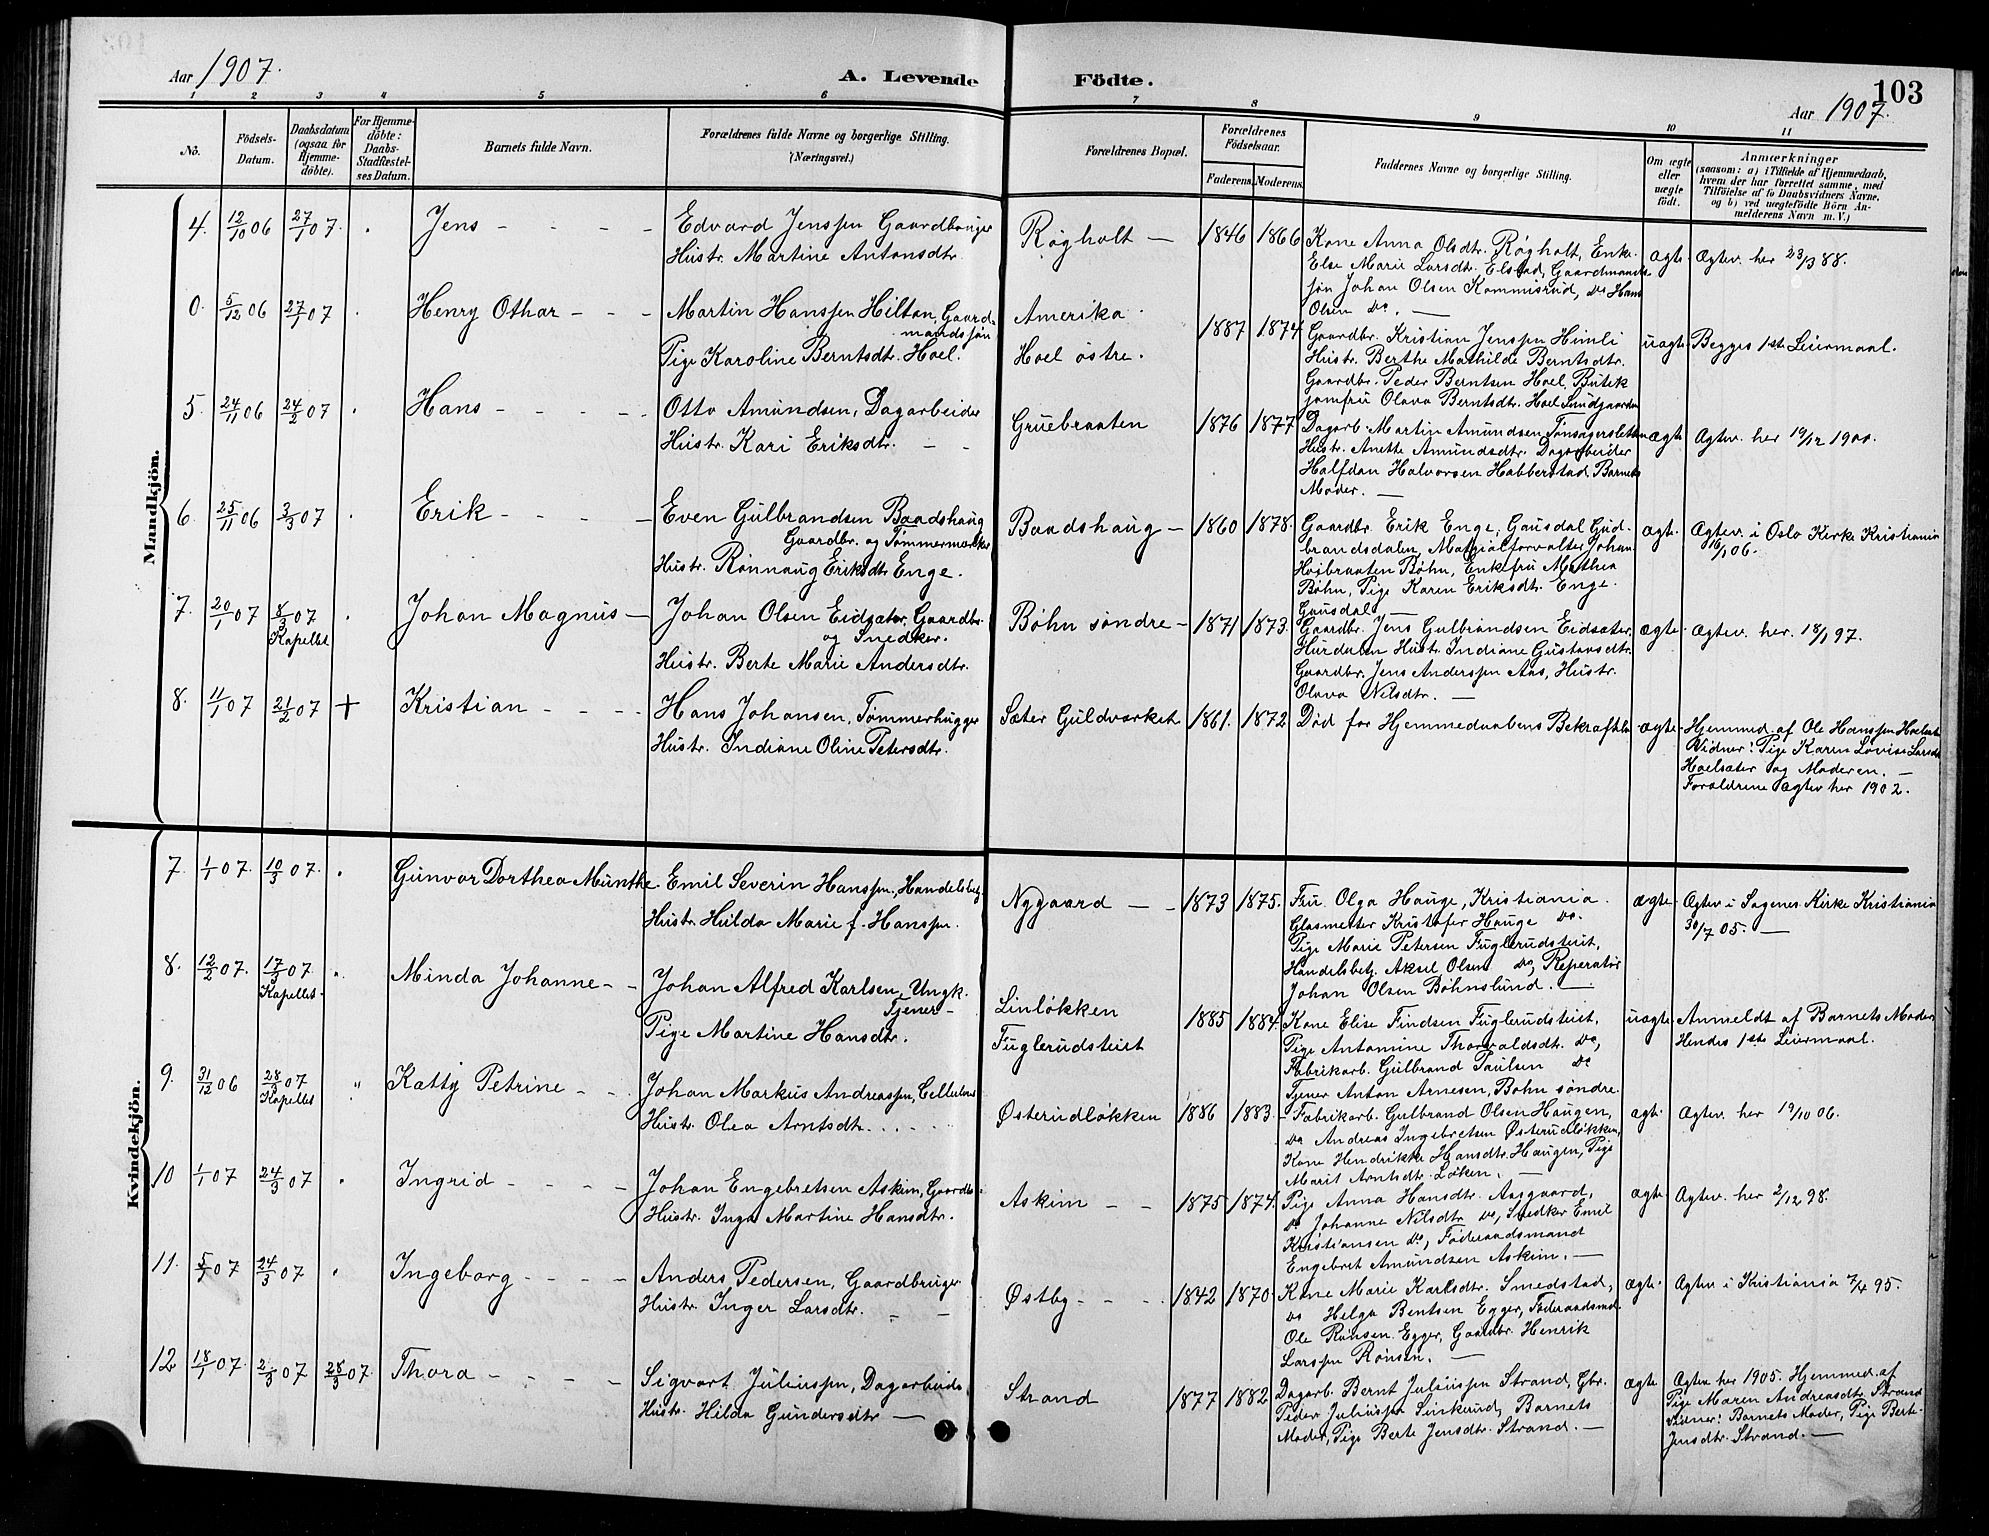 Aar 1907.
A. Levende Födte.
103
Aar 1907.
1 2 3 4 5 6 7 8 9 10 11
No.
Födsels-Datum.
Daabsdatum (ogsaa for Hjemme-döbte).
For Hjemme-döbte: Daabs-Stadfæstel-ses Datum.
Barnets fulde Navn.
Forældrenes fulde Navne og borgerlige Stilling. (Næringsvei.)
Forældrenes Bopæl.
Forældrenes Födselsaar.
Faderens. Moderens.
Faddernes Navne og borgerlige Stilling.
Om ægte eller uægte födt.
Anmærkninger
(saasom: a) i Tilfælde af Hjemmedaab,
hvem der har forrettet samme, med
Tilföielse af to Daabsvidners Navne,
og b) ved uægtefödte Börn An-
melderens Navn m. V.)
Mandkjön.
4. 12/10 06 27/1 07. Jens
Edvard Jenssen Gaardbruger
Hustr. Martine Antonsdtr.
Røgholt 1846 1866
Kone Anna Olsdtr. Røgholt, Enke
Else Marie Larsdtr. Elstad, Gaardmands
søn Johan Olsen Kommisrud, do Hans
Olsen do.
ægte. Ægtev. her 23/3 88.
0. 5/12 06 27/1 07 Henry Othar
Martin Hanssen Hilton, Gaard-
mandssøn
Pige Karoline Berntsdtr. Hoel.
Amerika.
Hoel østre.
1887 1874
Gaardbr. Kristian Jenssen Himli
Hustr. Berthe Mathilde Berntsdtr.
Gaardbr. Peder Berntsen Hoel, Butik
jomfru Olava Berntsdtr. Hoel
uægte. Begges 1ste Leiermaal.
5. 24/11 06 24/2 07 Hans
Otto Amundsen, Dagarbeider
Hustr. Kari Eriksdtr.
Gruebraaten 1876 1877
Dagarb. Martin Amundsen
Hustr. Anette Amundsdtr. Dagarbeider
Halfdan Halvorsen Habberstad, Barnets
Moder.
ægte Ægtev. her 19/12 1900.
6. 25/11 06 3/3 07 Erik
Even Gulbrandsen Baadshaug
Gaardbr. og Tømmermærker
Hustr. Rønnaug Eriksdtr Enge.
Baadshaug 1860 1878.
Gaardbr. Erik Enge, Gausdal Gud-
brandsdalen, Matrialforvalter Johan
Høibraaten Bøhn, Enkefru Mathea
Bøhn, Pige Karen Eriksdtr. Enge
Gausdal
ægte. Ægtev. i Oslo Kirke Kristiania
16/1 06.
7. 20/1 07 8/3 07 Kapellet Johan Magnus
Johan Olsen Eidsæter, Gaardbr.
og Snedker.
Hustr. Berte Marie Andersdtr.
Bøhn søndre 1871 1873.
Gaardbr. Jens Gulbrandsen Eidsæter,
Hurdalen Hustr. Indiane Gustavsdtr.
Gaardbr. Jens Anderssen Aas, Hustr.
Olava Nilsdtr.
ægte. Ægtev. her. 18/1 97.
8. 11/1 07 21/2 07 + Kristian
Hans Johansen, Tømmerhugger
Hustr. Indiane Oline Petersdtr.
Sæter Guldverket 1861. 1872
Død før Hjemmedaabens Bekræftelse
ægte Hjemmed. af Ole Hanssen Hoelsæter
Vidner: Pige Karen Lovise Larsdtr
Hoelsæter og Moderen.
Forældrene Ægtev her 1902.
Kvindekjön.
7. 1/1 07. 10/3 07. Gunvor Dorthea Munthe
Emil Severin Hanssen, Handelsbetj.
Hustr. Hilda Marie f. Hanssen.
Nygaard 1873 1875.
Fru Olga Hauge, Kristiania.
Glasmester Kristofer Hauge do.
Pige Marie Petersen Fuglerudsteiet,
Handelsbetj. Aksel Olsen do, Reperatør
Johan Olsen Bøhnslund.
ægte Ægtev i Sagenes Kirke Kristiania
30/7 05.
8. 12/2 07. 17/3 07 Kapellet Minda Johanne
Johan Alfred Karlsen, Ungk.
Tjener
Pige Martine Hansdtr.
Linløkken
Fuglerudsteiet
1885 1884.
Kone Elise Findsen Fuglerudsteiet,
Pige Antomine Thorvaldsdtr. do,
Fabrikarb. Gulbrand Paulsen do
Tjener Anton Arnesen, Bøhn søndre
uægte Anmeldt af Barnets Moder
Hendes 1ste Leiermaal.
9. 31/12 06 28/3 07 Kapellet Katty Petrine
Johan Markus Andreassen,
Hustr. Olea Arntsdtr.
Østerudløkken 1886 1883.
Fabrikarb. Gulbrand Olsen Haugen,
do Andreas Ingebretsen Østerudløkken,
Kone Hendrikke Hansdtr. Haugen, Pige
Marit Arntsdtr. Løken.
ægte. Ægtev. her 19/10 06.
10 1/1 07 24/3 07 Ingrid
Johan Engebretsen Askim, Gaardbr.
Hustr. Inga Martine Hansdtr.
Askim 1875 1874.
Pige Anna Hansdtr. Aasgaard,
do Johanne Nilsdtr do, Snedker Emil
Kristiansen do, Føderaadsmand
Engebret Amundsen Askim.
ægte Ægtev. her 2/12 98.
11. 5/1 07 24/3 07 Ingeborg
Anders Pedersen, Gaardbruger
Hustr. Inger Larsdtr.
Østby 1842 1870
Kone Marie Karlsdtr. Smedstad,
do Helga Bentsen Egger, Føderaadsmd.
Ole Rønsen Egger, Gaardbr. Henrik
Larssen Rønsen.
ægte. Ægtev i Kristiania 7/4 95.
12 18/1 07. 2/3 07 28/3 07. Thora
Sigvart Juliussen, Dagarbeider
Hustr. Hilda Gundersdtr
Strand 1877 1882
Dagarb. Bernt Juliussen Strand, Gbr.
Peder Juliussen Linkerud, Barnets
Moder, Pige Berte Jensdtr. Strand.
ægte Ægtev her 1905. Hjemmed. af
Pige Maren Andreasdtr. Strand
Vidner: Barnets Moder, Pige Berte
Jensdtr. Strand.